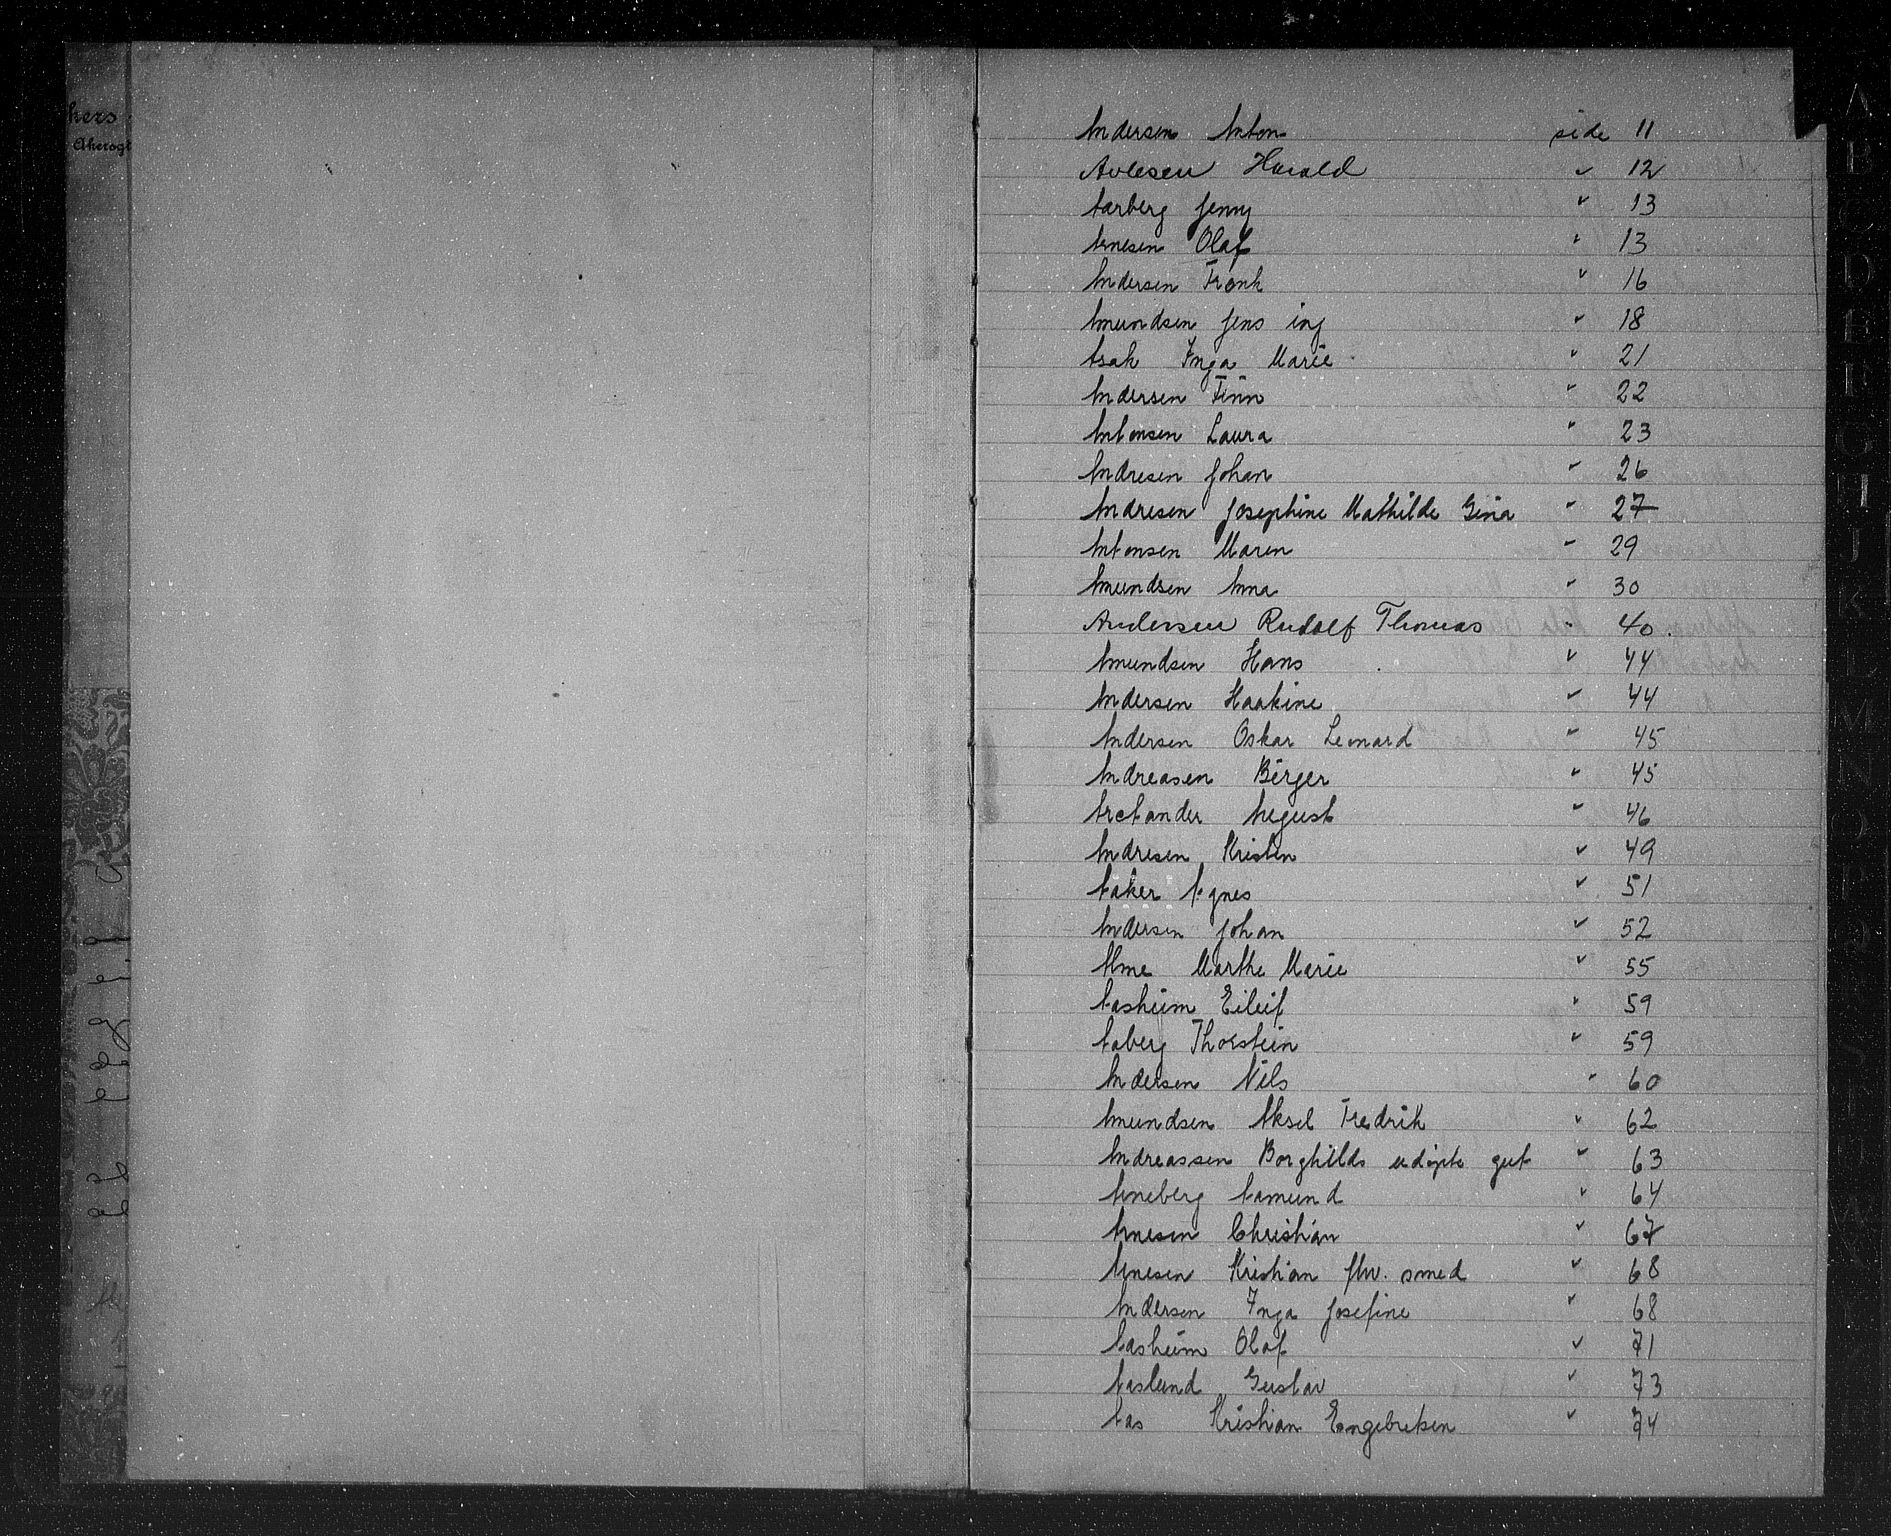 Andersen Anton side 11
Avlesen Harald " 12
Aarberg Jenny " 13
Arnesen Olaf " 13
Andersen Frank " 16
Amundsen Jens ing " 18
Asak Inga Marie " 21
Andersen Finn " 22
Antonsen Laura " 23
Andresen Johan " 26
Andresen Josephine Mathilde Gina " 27
Antonsen Maren " 29
Amundsen Anna " 30
Andersen Rudolf Thomas " 40.
Amundsen Hans " 44
Andersen Haakine " 44
Andersen Oskar Leonard " 45
Andreasen Birger " 45
Arctander August " 46
Andresen Kristen " 49
Aaker Agnes " 51
Andersen Johan " 52
Alme Marthe Marie " 55
Aasheim Eileif " 59
Aaberg Thorstein " 59
Andersen Nils " 60
Amundsen Aksel Fredrik " 62
Andreassen Borghilds udøpte gut " 63
Arneberg Aamund " 64
Arnesen Christian " 67
Arnesen Kristian fhv. smed " 68
Andersen Inga Josefine " 68
Aasheim Olaf " 71
Aaslund Gustav " 73
Aas Kristian Engebretsen " 74